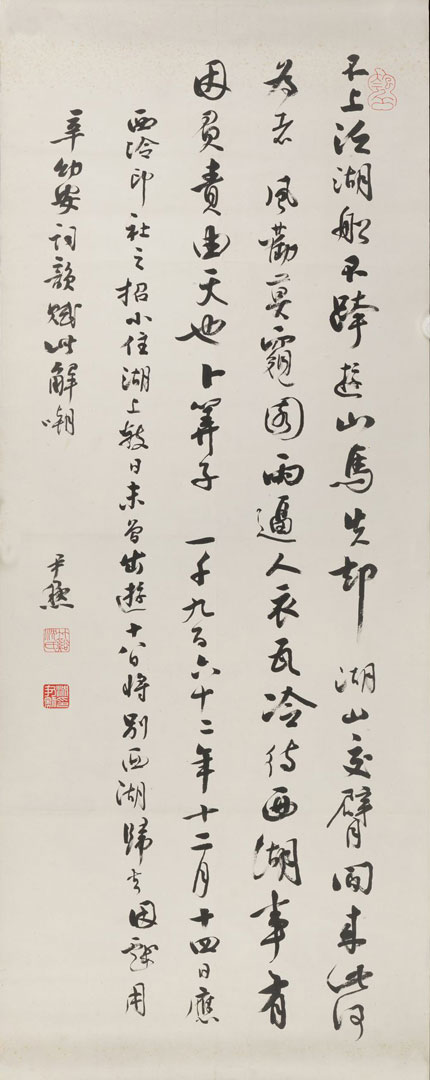 不上泛湖船不跨遊山馬失却 湖山交臂間來此何
為者 風勸莫窺園雨逼人衣瓦冷待西湖事有
因負責由天也卜筭子 一千九百六十二年十二月十四日應
西泠印社之招小住湖上數日未曾出遊十八日將別西湖歸去因戲用
辛幼安詞韻賦此解嘲
尹默